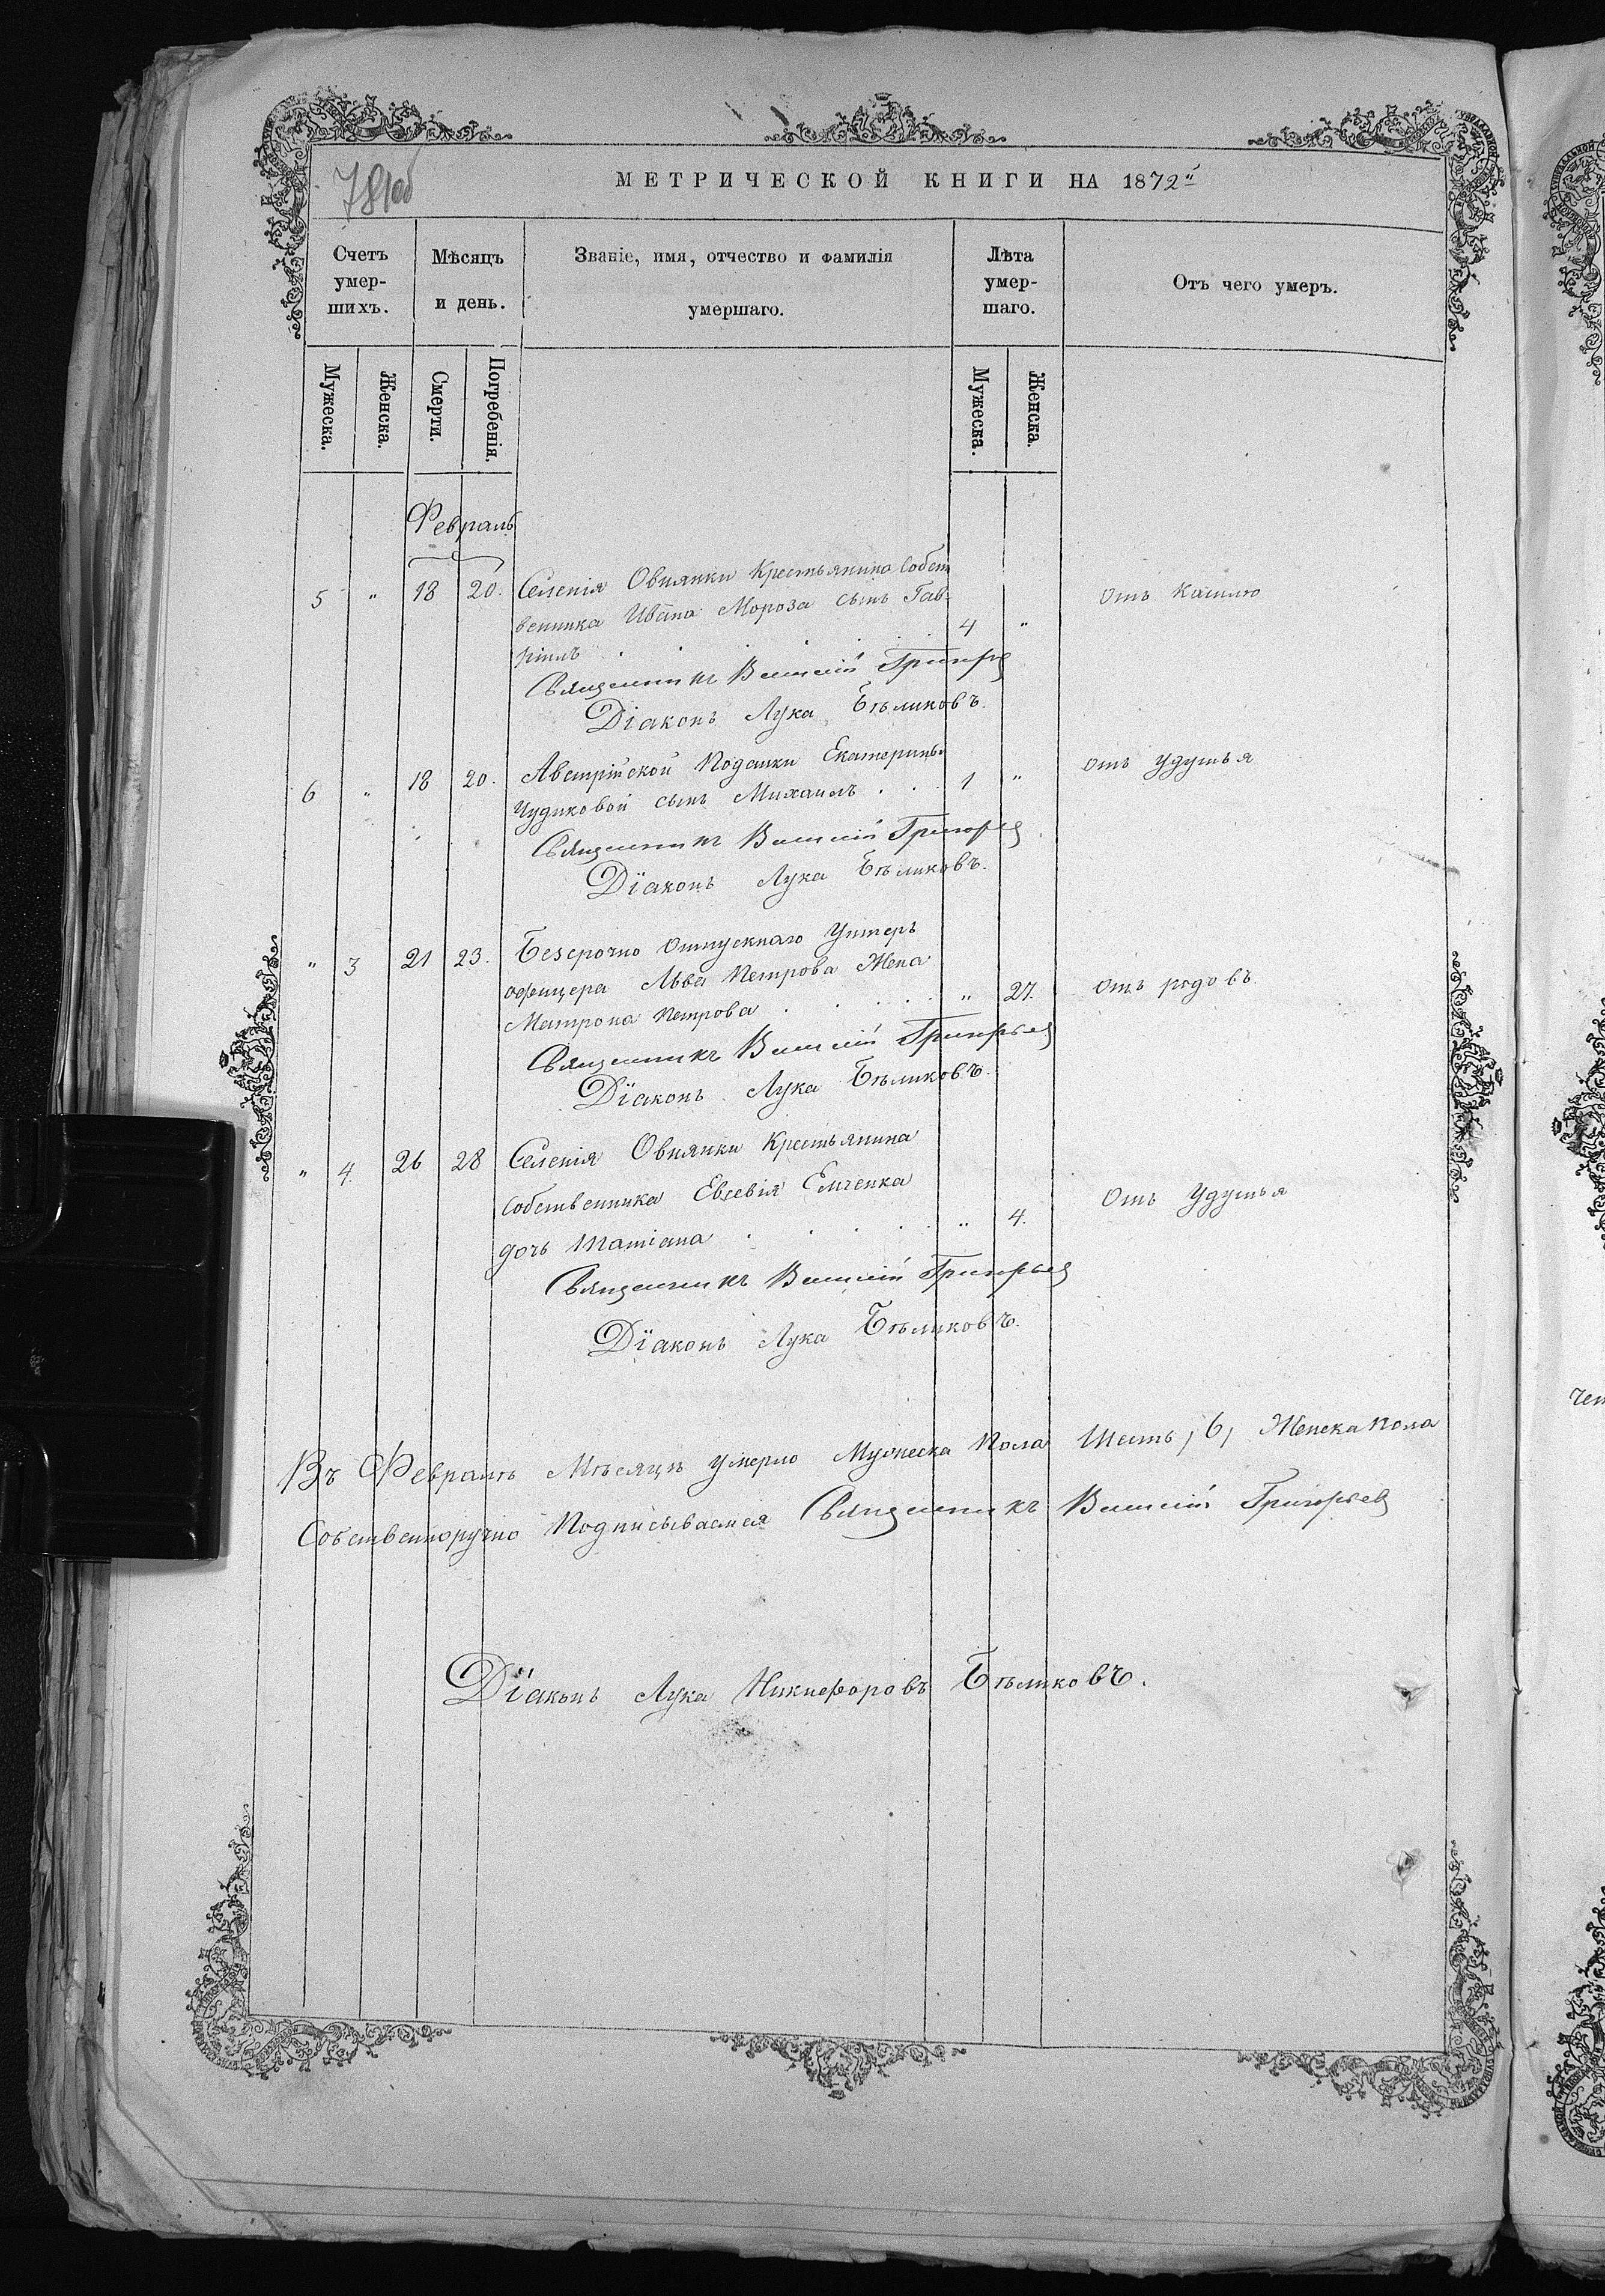 781об
МЕТРИЧЕСКОЙ КНИГИ НА 1872й
Счетъ умер-шихъ.
Мѣсяцъ и день.
Званіе, имя, отчество и фамилія умершаго.
Лѣта умер-шаго.
Отъ чего умеръ.
Мужеска. Женска. Смерти. Погребенія. Мужеска. Женска.
Февраль
5 " 18 20. Селенія Овнянки Крестьянина Собст
венника Ивана Мороза сынъ Гав-
ріилъ . . . . . 4 " отъ Кашлю
Священникъ Василій Григорьев
Діаконъ Лука Бѣликовъ.
6 " 18 20. Австрійской Поданки Екатерины
Чудиковой сынъ Михаилъ . . . 1 " отъ удушья
Священникъ Василій Григорьев
Діаконъ Лука Бѣликовъ.
" 3 21 23. Безсрочно Отпускнаго Унтеръ
офицера Льва Петрова Жена
Матрона Петрова . . . . " 27. отъ родовъ
Священникъ Василій Григорьев
Діаконъ Лука Бѣликовъ.
" 4. 26 28 Селенія Овнянки Крестьянина
Собственника Евсевія Емченка
дочь Татіана . . . . " 4. Отъ Удушья
Священникъ Василій Григорьев
Діаконъ Лука Бѣликовъ.
Въ Февралѣ Мѣсяцѣ умерло Мужеска Пола Шесть, 6, Женска Пола
Собственноручно Подписываемся Священникъ Василій Григорьев
Діаконъ Лука Никифоровъ Бѣликовъ.